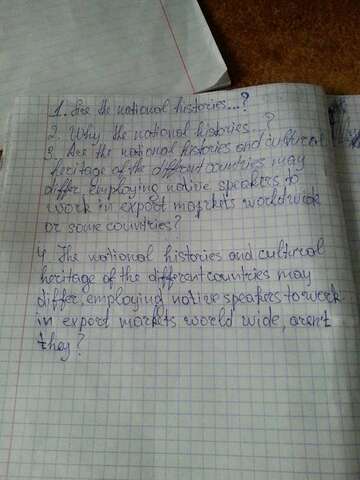 1. Are the national histories...?
2. Why the national histories...?
3. Are the national histories and cultural
heritage of the different countries may
differ, employing native speakers to
work in export markets worldwide
or some countries?
4 The national histories and cultural
heritage of the different countries may
differ, employing native speakers to work
in export markets world wide, aren't
they?